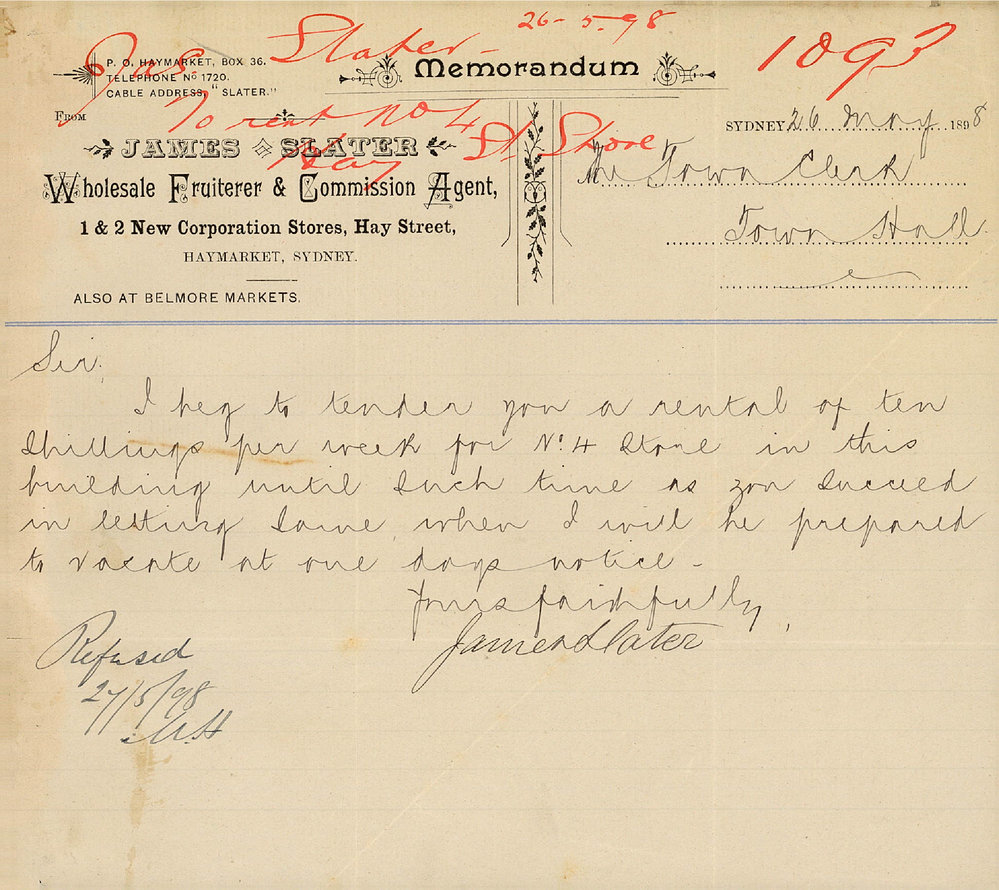 26-5-98
Slater-
1093
P. O. HAYMARKET, BOX 36.
TELEPHONE No 1720.
CABLE ADDRESS, "SLATER."
Memorandum
FROM
To rent No 4
Hay St Store
JAMES SLATER
SYDNEY 26 May 1898
Wholesale Fruiterer & Commission Agent,
M The Town Clerk
1 & 2 New Corporation Stores, Hay Street,
Town Hall
HAYMARKET, SYDNEY.
ALSO AT BELMORE MARKETS.
Sir,
I beg to tender you a rental of ten
shillings per week for No. 4 Store in this
building until such time as you succeed
in letting same when I will be prepared
to vacate at one days notice -
Yours faithfully,
James Slater
Refused
27/5/98